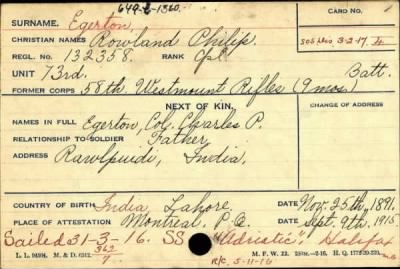 649-E-1360.
SURNAME. Egerton, CARD NO.
CHRISTIAN NAMES Rowland Philip.
REGL. NO. 132358. RANK Cpl SOS 3-2-17
UNIT 73rd. Batt.
FORMER CORPS 58th Westmount Rifles (9 mos)
NEXT OF KIN. CHANGE OF ADDRESS
NAMES IN FULL Egerton, Col. Charles P.
RELATIONSHIP TO SOLDIER Father
ADDRESS Rawlpindi, India,
COUNTRY OF BIRTH India, Lahore DATE Nov. 25th, 1891.
PLACE OF ATTESTATION Montreal, P.Q. DATE Sept. 9th, 1915
Sailed 31-3-16. SS "Adriatic", Halifax
L. L. M. & D. M. F. W. 22. H. Q.
R/C 5-11-16